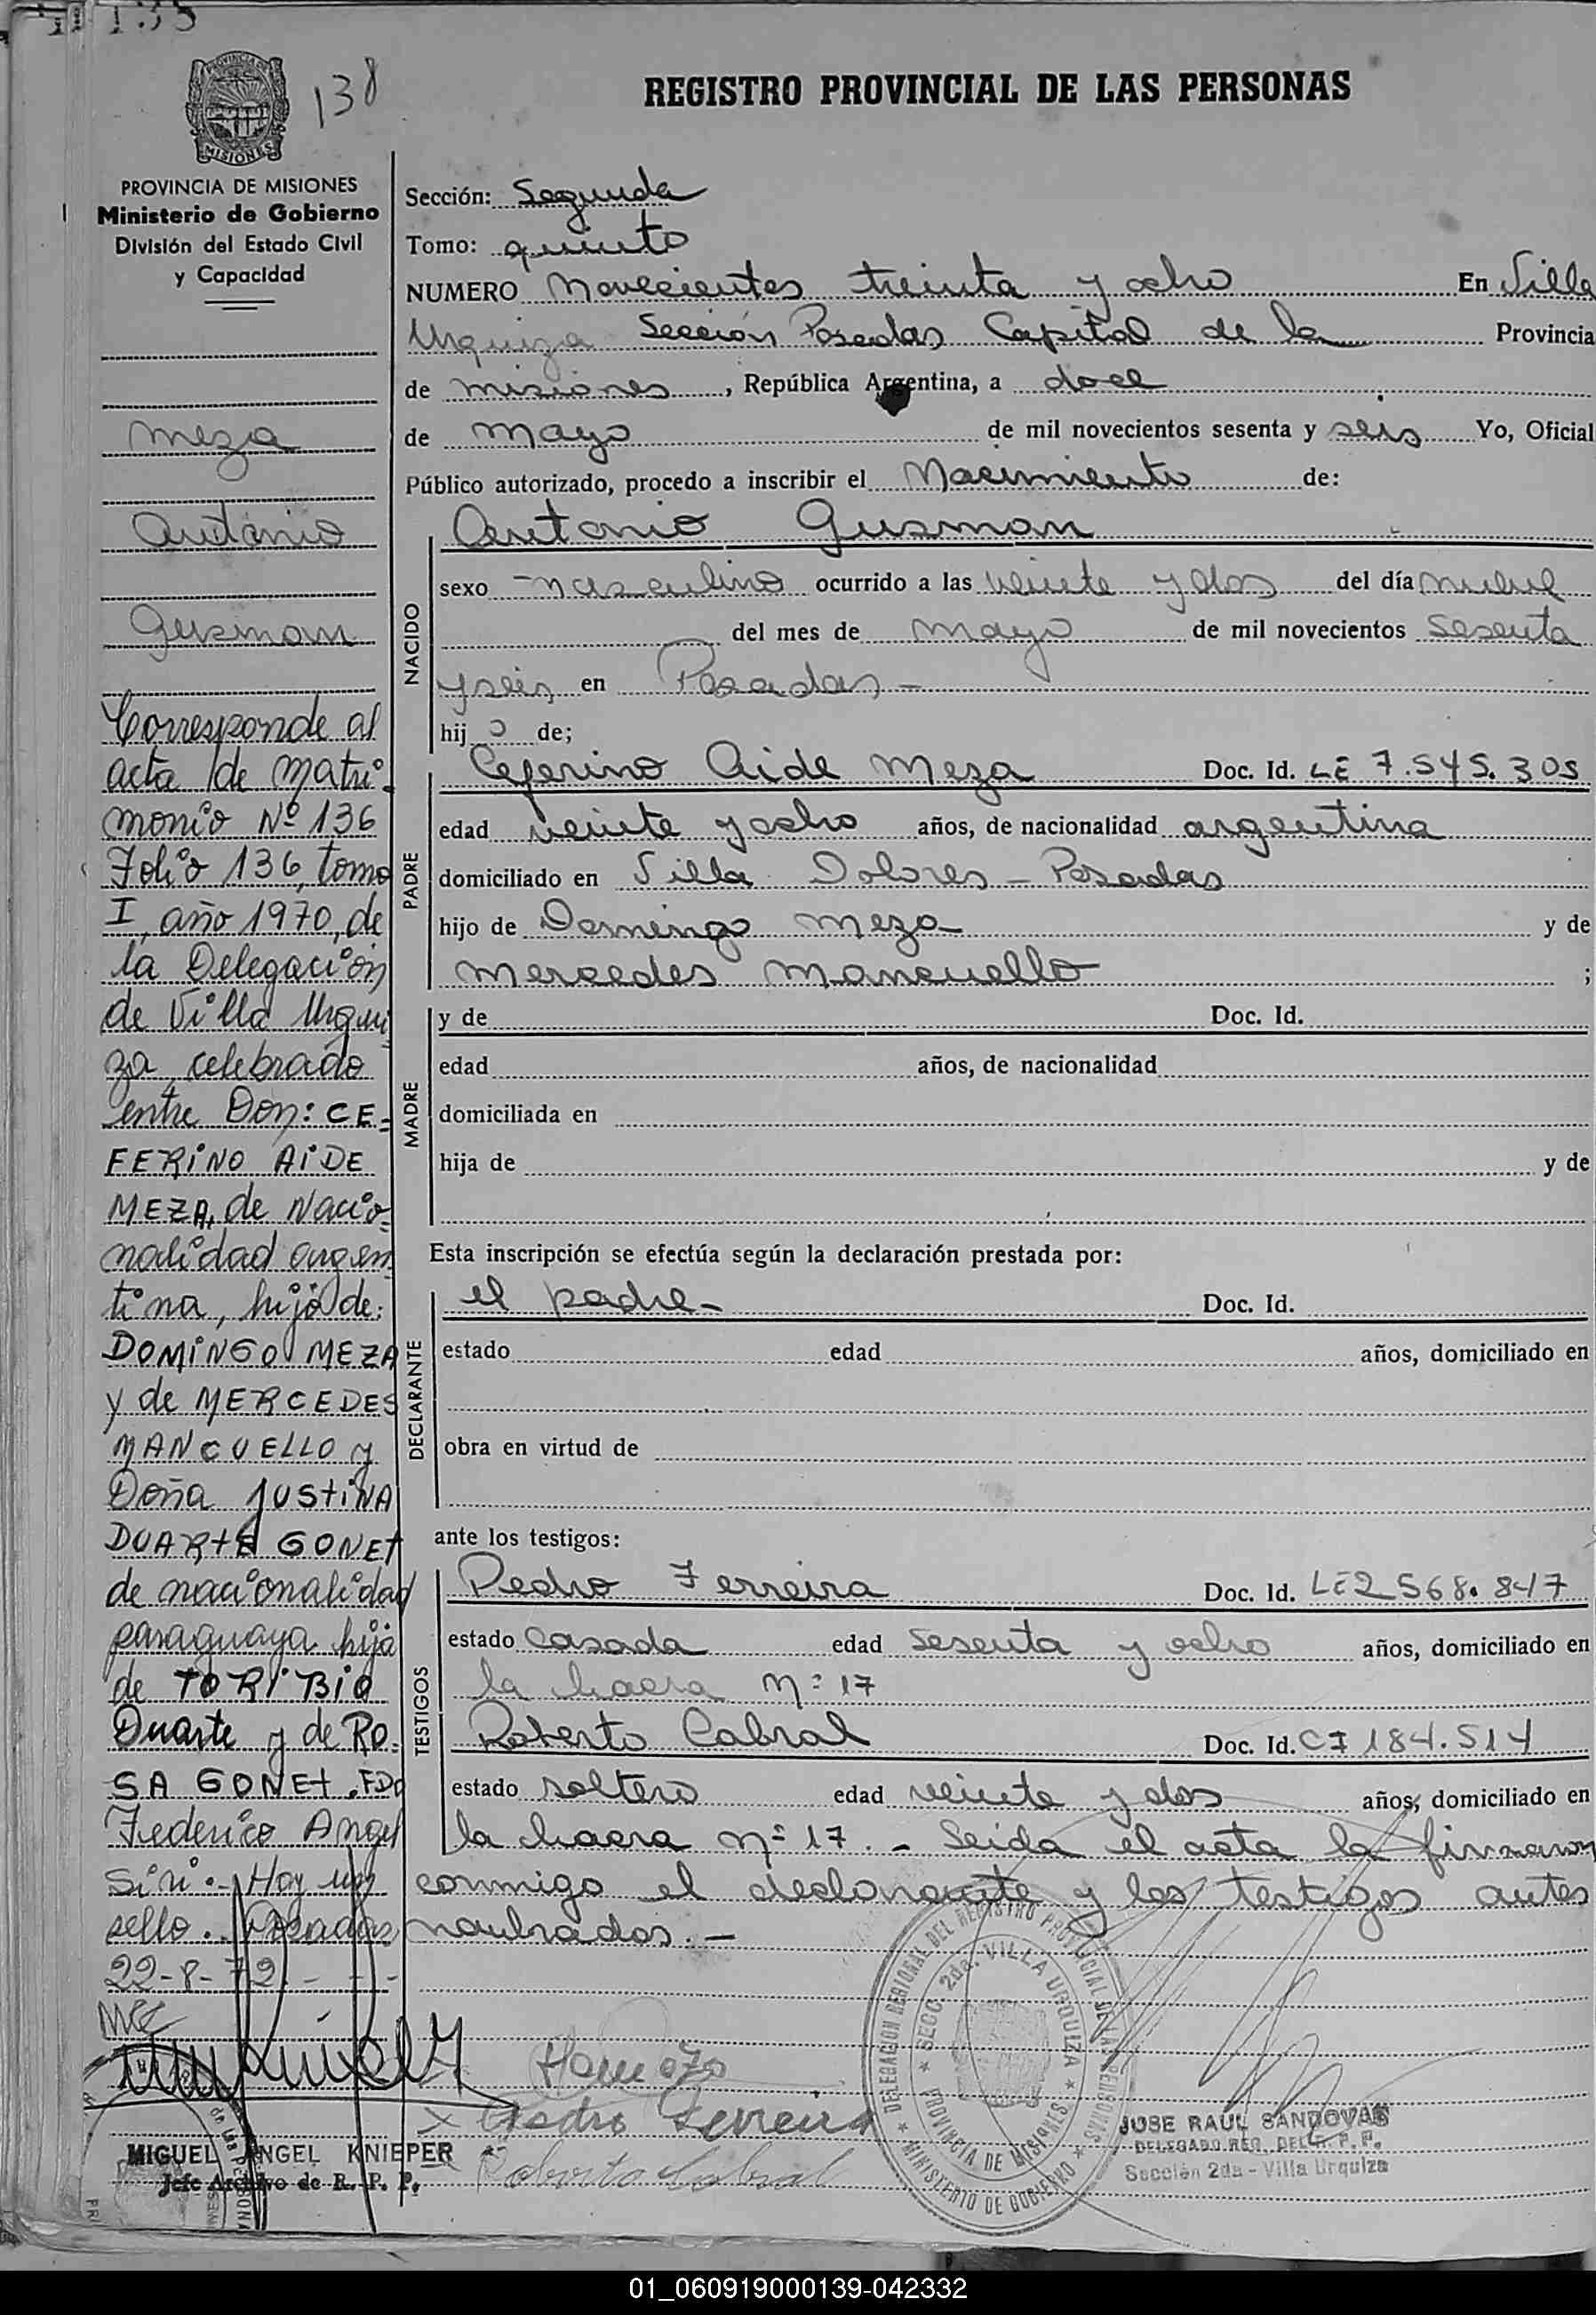 138
REGISTRO PROVINCIAL DE LAS PERSONAS
MISIONES
PROVINCIA DE MISIONES
Ministerio de Gobierno
División del Estado Civil
y Capacidad
Meza
Antonio
Gusman
Corresponde al
acta de matri-
monio Nº 136
Folio 136, tomo
I, año 1970, de
la Delegación
de Villa Urqui
za, celebrado
entre Don: CE-
FERINO AIDE
MEZA, de Nacio-
nalidad argen
tina, hijo de:
DOMINGO MEZA
y de MERCEDES
MANCUELLO y
Doña JUSTINA
DUARTE GONET
de nacionalidad
paraguaya hija
de TORIBIO
Duarte y de RO-
SA GONET. FDO
Federico Angel
Siri.- Hay un
sello. Posadas
22-8-72.-
MIGUEL ANGEL KNIEPER
Jefe Archivo de R. P. P.
Sección: Segunda
Tomo: quinto
NUMERO Novecientos treinta y ocho En Villa
Urquiza Sección Posadas Capital de la Provincia
de misiones, República Argentina, a doce
de mayo de mil novecientos sesenta y seis Yo, Oficial
Público autorizado, procedo a inscribir el Nacimiento de:
Antonio Gusman
NACIDO
sexo masculino ocurrido a las veinte y dos del día nueve
del mes de mayo de mil novecientos sesenta
y seis en Posadas -
hijo de;
PADRE
Ceferino Aide Meza Doc. Id. LE 7.545.305
edad veinte y ocho años, de nacionalidad argentina
domiciliado en Villa Dolores - Posadas
hijo de Domingo Meza y de
Mercedes Mancuello ;
MADRE
y de Doc. Id.
edad años, de nacionalidad
domiciliada en
hija de y de
Esta inscripción se efectúa según la declaración prestada por:
DECLARANTE
el padre - Doc. Id.
estado edad años, domiciliado en
obra en virtud de
ante los testigos:
TESTIGOS
Pedro Ferreira Doc. Id. LE 2568.847
estado casada edad sesenta y ocho años, domiciliado en
la chacra Nº 17
Roberto Cabral Doc. Id. CI 184.514
estado soltero edad veinte y dos años, domiciliado en
la chacra nº 17. - Leida el acta la firmaron
conmigo el declarante y los testigos antes
nombrados. -
Pedro Ferreira
Roberto Cabral
DELEGACION REGIONAL DEL REGISTRO PROVINCIAL DE LAS PERSONAS
SECC. 2da. VILLA URQUIZA
PROVINCIA DE MISIONES
MINISTERIO DE GOBIERNO
JOSE RAUL SANDOVAL
DELEGADO REG. DEL R. P. P.
Sección 2da - Villa Urquiza
01_060919000139-042332